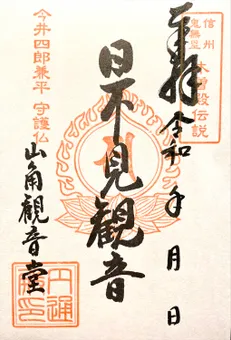 信州
鬼無里
木曽殿伝説
奉拝 令和 年 月 日
日不見觀音
今井四郎兼平 守護仏
山角觀音堂
円通